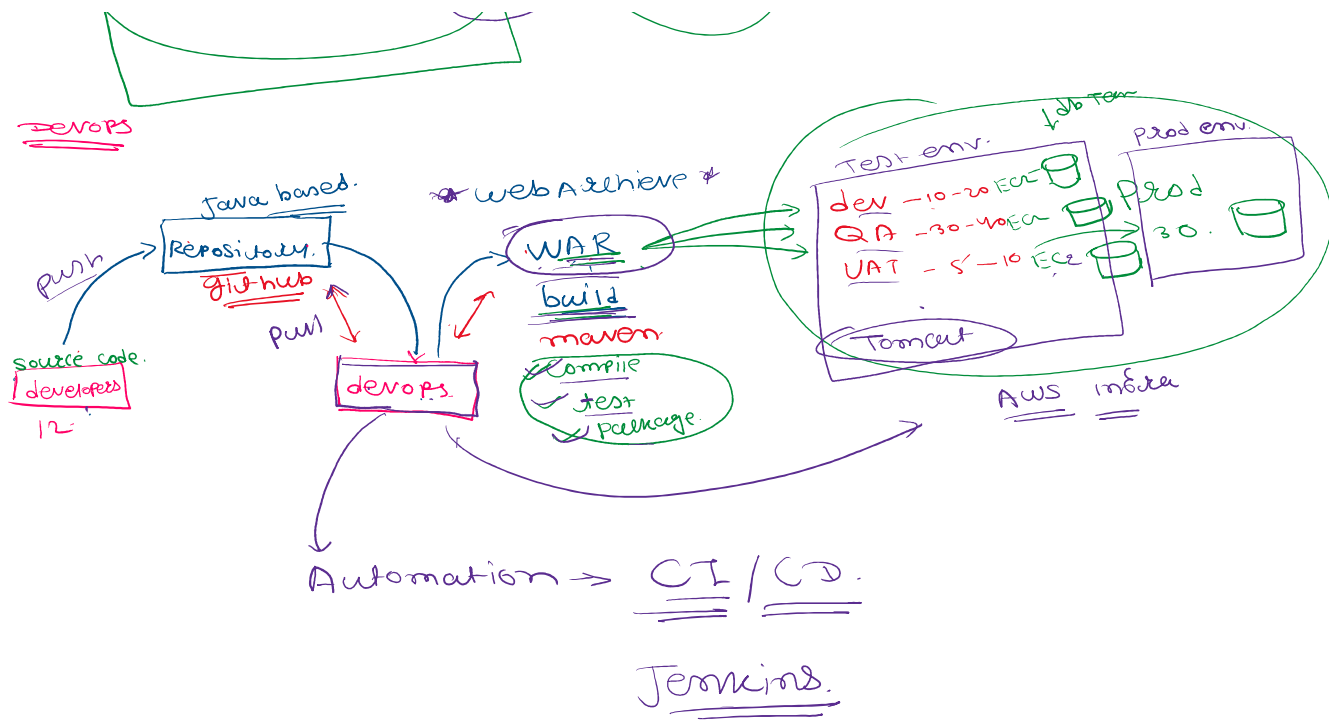 Devops
Java based.
Repository.
github
push
source code.
developers
12
push
devops
* web Archieve *
WAR
build
maven
compile
test
package
db Team
Test env.
dev - 10-20 EC2
QA - 30-40 EC2
UAT - 5-10 EC2
Tomcat
Prod env.
Prod
30.
AWS infra
Automation → CI / CD.
Jenkins.